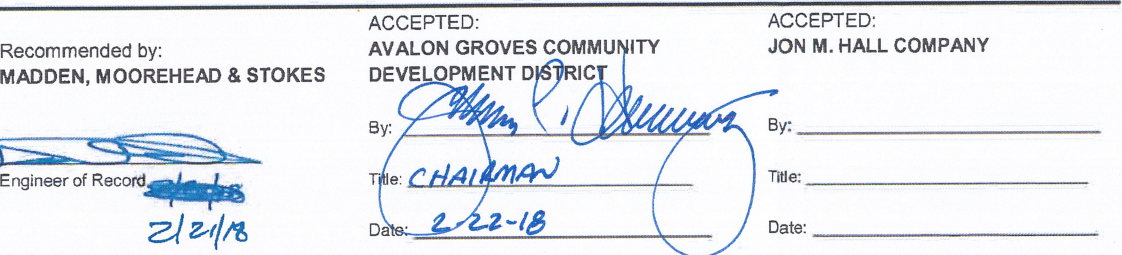 Recommended by:
MADDEN, MOOREHEAD & STOKES
Engineer of Record
2/21/18
ACCEPTED:
AVALON GROVES COMMUNITY
DEVELOPMENT DISTRICT
By:
Title: CHAIRMAN
Date: 2-22-18
ACCEPTED:
JON M. HALL COMPANY
By:
Title:
Date: